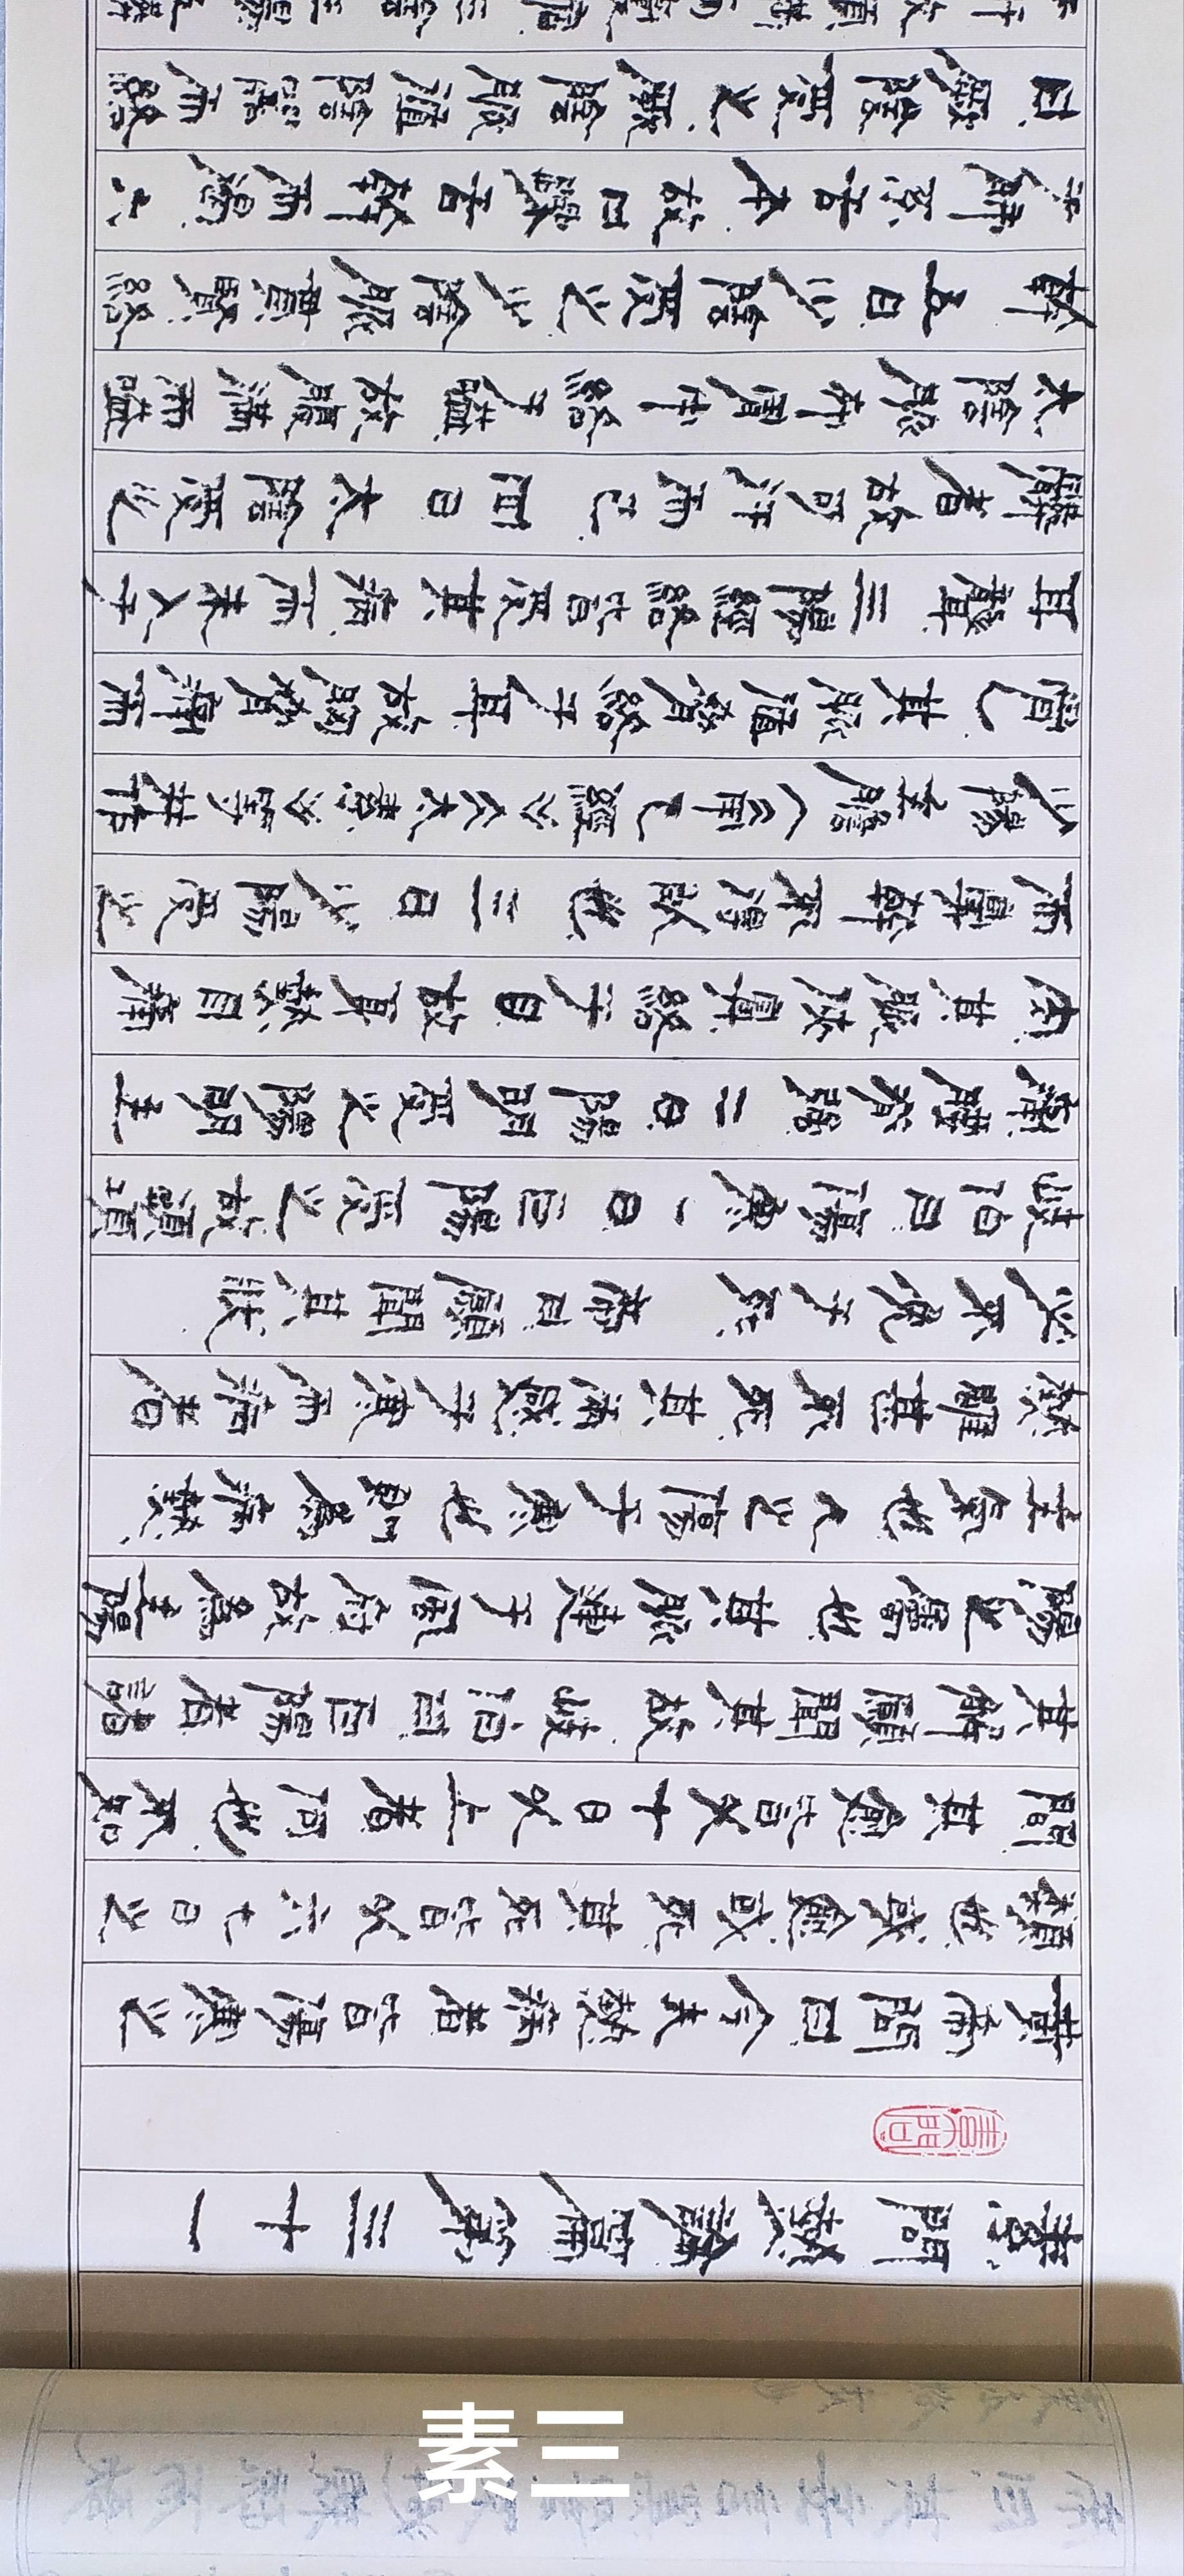 素問熱論篇第三十一
黃帝問曰今夫熱病者皆傷寒之
類也或愈或死其死皆以六七日之
間其愈皆以十日以上者何也不知
其解願聞其故岐伯曰巨陽者諸
陽之屬也其脈連于風府故為諸陽
主氣也人之傷于寒也則為病熱
熱雖甚不死其兩感于寒而病者
必不免于死 帝曰願聞其狀
岐伯曰傷寒一日巨陽受之故頭項
痛腰脊強二日陽明受之陽明主
肉其脈俠鼻絡于目故身熱目痛
而鼻乾不得臥也三日少陽受之
少陽主膽《甲乙經》《太素》等並作
骨)其脈循脅絡于耳故胸脅痛而
耳聾三陽經絡皆受其病而未入于
臟者故可汗而已四日太陰受之
太陰脈布胃中絡于嗌故腹滿而嗌
乾五日少陰受之少陰脈貫腎絡
于肺系舌本故口燥舌乾而渴六
日厥陰受之厥陰脈循陰器而絡
素三